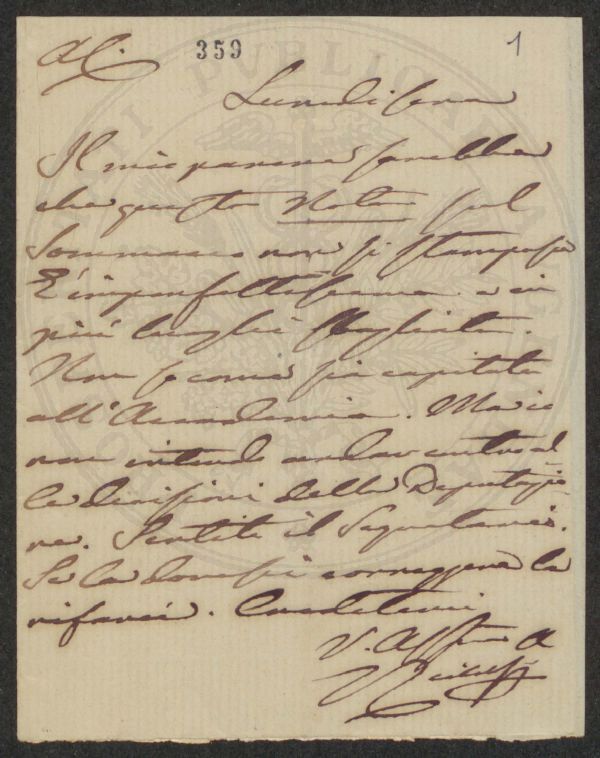 A C.
359
1
Lunedi sera
Il mio parere sarebbe
che questa Nota sul
Sommacco non si stampasse
È imperfettissima e in
più luoghi sbagliata.
Non so come sia capitata
all'Accademia. Ma io
non intendo andar contro al
le decisioni della Deputazio
ne. Sentite il Segretario.
Se la dovessi correggere la
rifarei. Credetemi
V. Affmo A